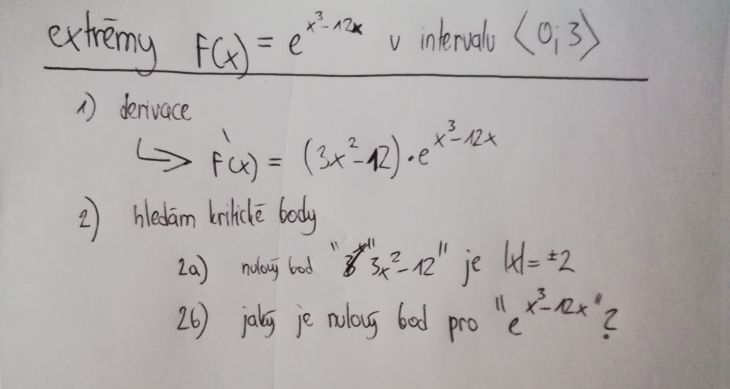 extrémy F(x) = e^{x³-12x} v intervalu ⟨0;3⟩
1) derivace
↳ F'(x) = (3x²-12)·e^{x³-12x}
2) hledám kritické body
2a) nulový bod "3x²-12" je |x|=±2
2b) jaký je nulový bod pro "e^{x³-12x}"?